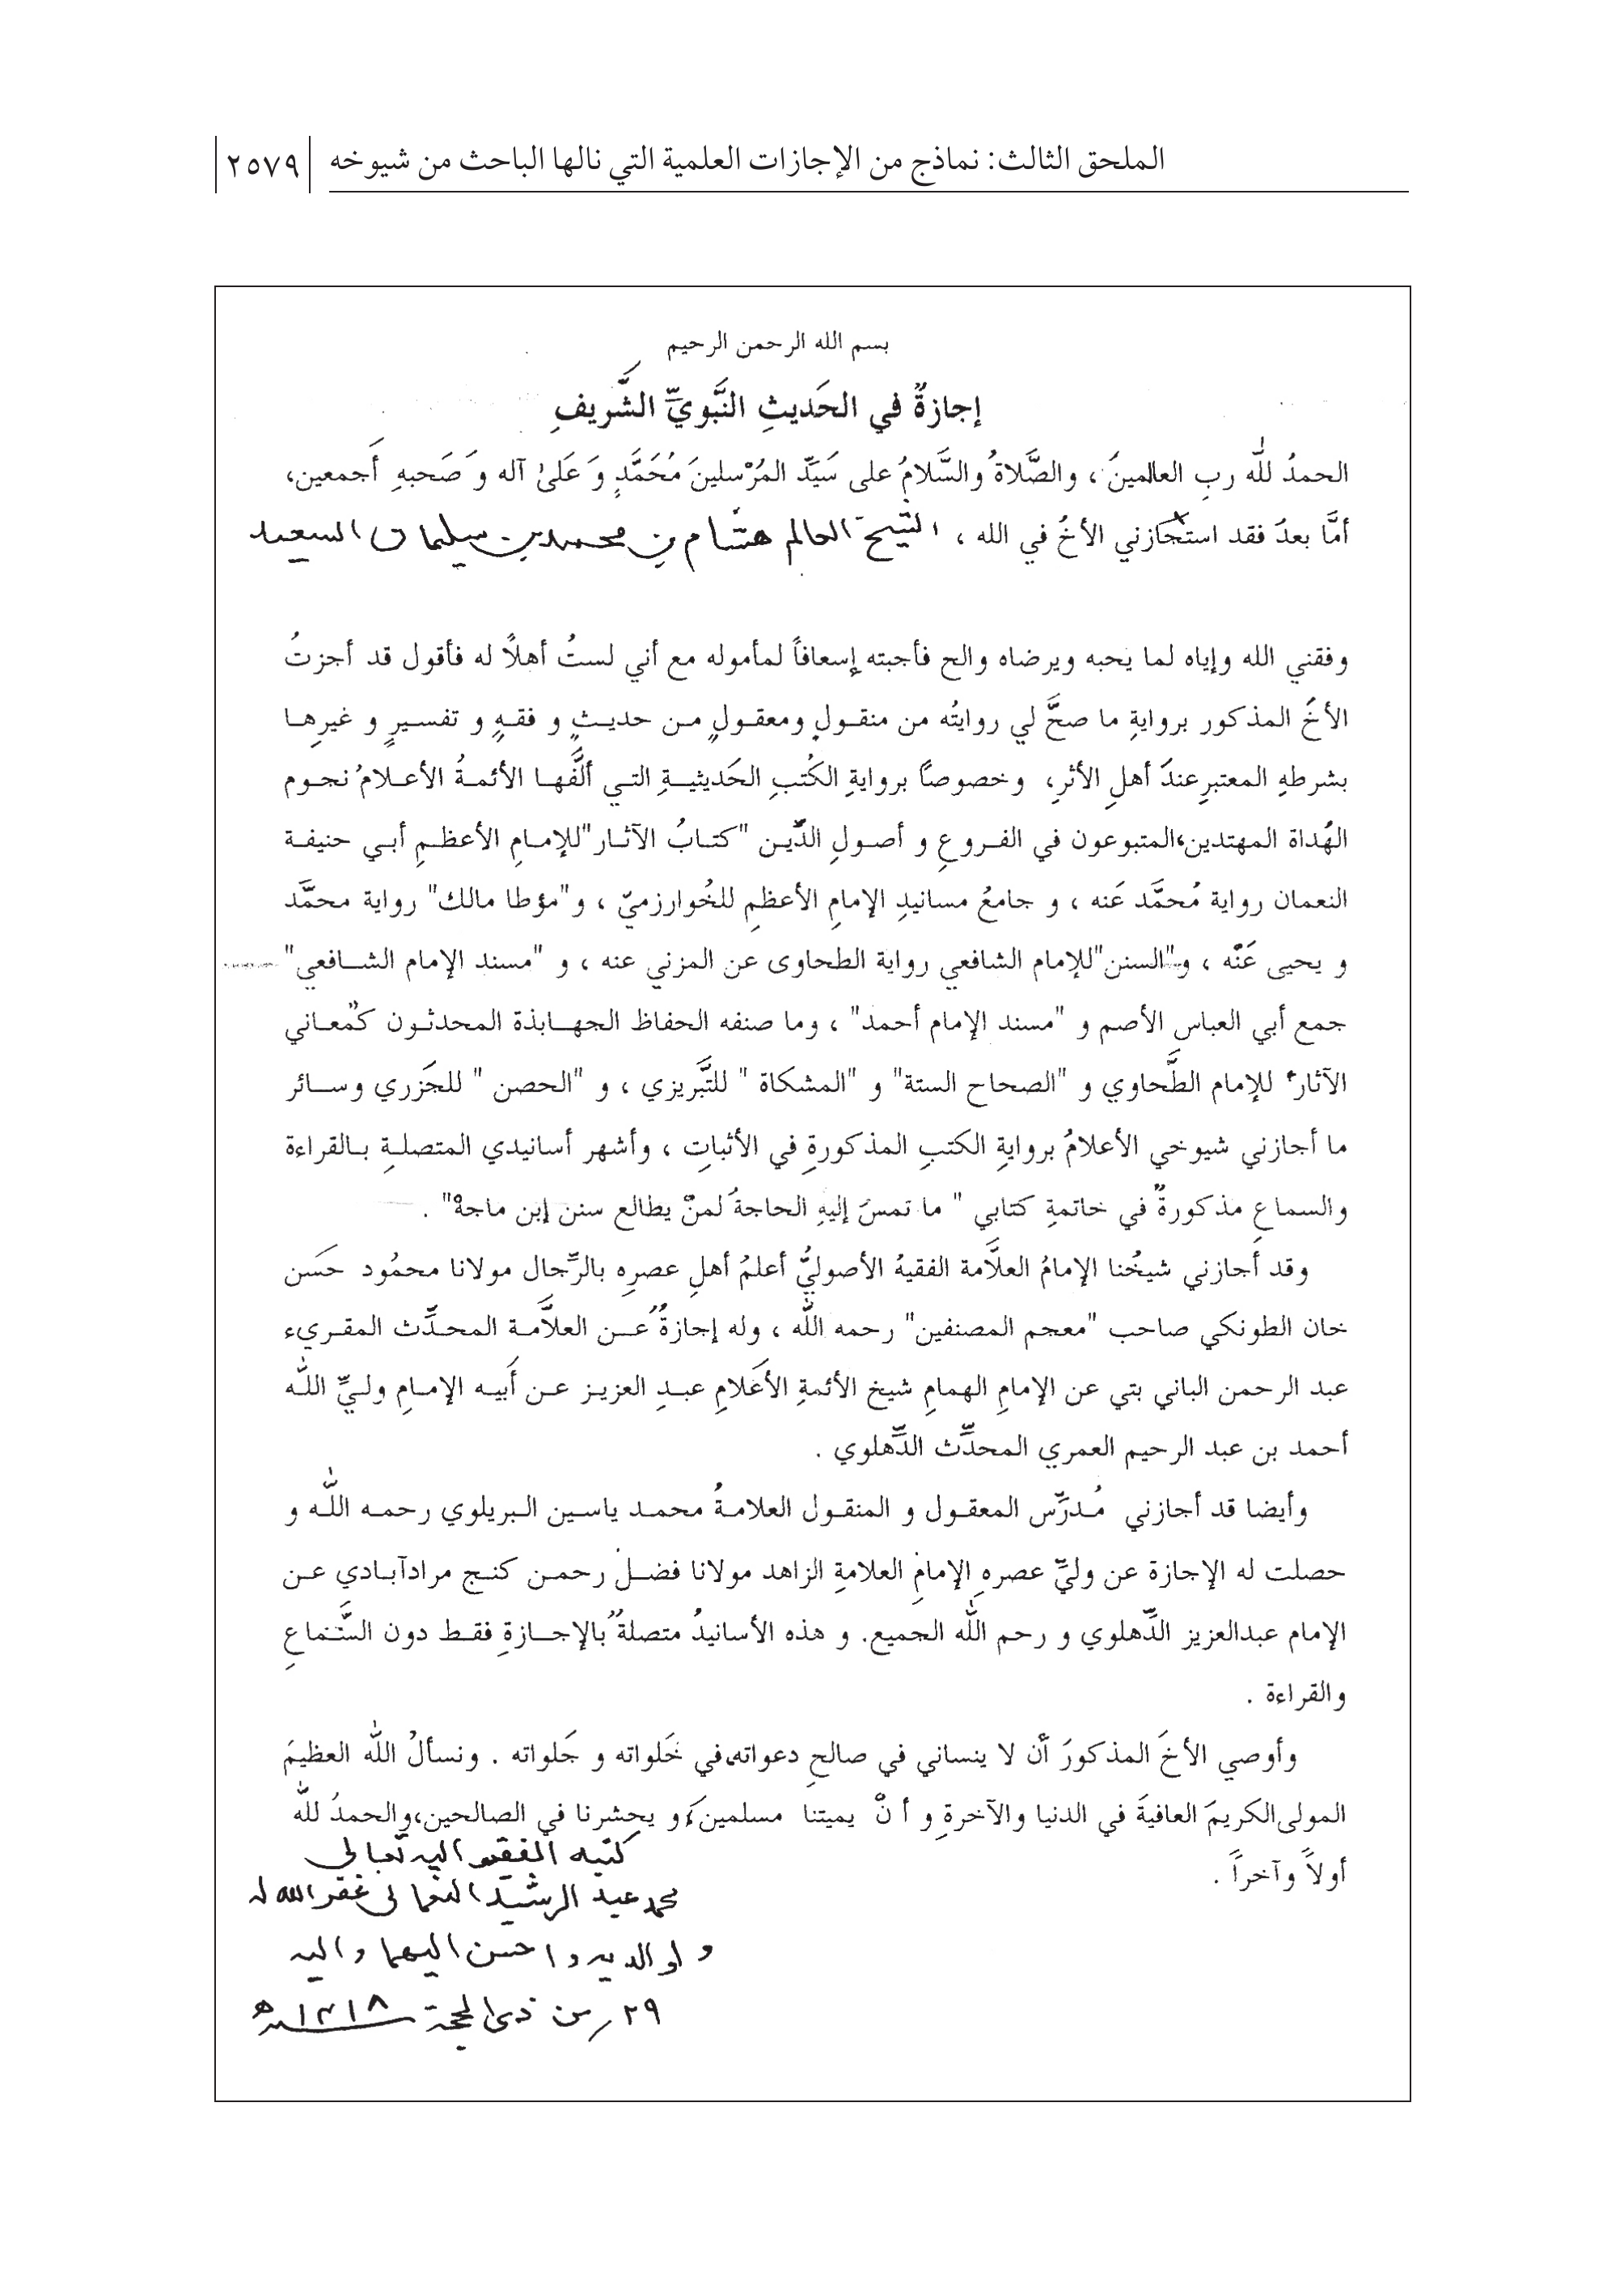 الملحق الثالث: نماذج من الإجازات العلمية التي نالها الباحث من شيوخه
٢٥٧٩
بسم الله الرحمن الرحيم
إجازةٌ في الحَديثِ النَّبويِّ الشَّريفِ
الحمدُ للّٰه ربِ العالمينَ ، والصَّلاةُ والسَّلامُ على سَيَدِّ المُرْسلينَ مُحَمَّدٍ وَ عَلىٰ آله وَ صَحبهِ أجمعين،
أمَّا بعدُ فقد استجازني الأخُ في الله ، الشيخ العالم هشام بن محمد بن سليمان السعيد
وفقني الله وإياه لما يحبه ويرضاه والح فأجبته إسعافاً لمأموله مع أني لستُ أهلاً له فأقول قد أجزتُ
الأخَ المذكور بروايةِ ما صحَّ لي روايتُه من منقولٍ ومعقولٍ من حديثٍ و فقهٍ و تفسيرٍ و غيرِها
بشرطهِ المعتبرِ عندَ أهلِ الأثرِ، وخصوصاً بروايةِ الكُتبِ الحَديثيةِ التي ألَّفها الأئمةُ الأعلامُ نجوم
الهُداة المهتدين،المتبوعون في الفروعِ و أصولِ الدِّين "كتابُ الآثار"للإمامِ الأعظمِ أبي حنيفة
النعمان رواية مُحمَّد عَنه ، و جامعُ مسانيدِ الإمامِ الأعظمِ للخُوارزميّ ، و"مؤطا مالك" رواية محمَّد
و يحيى عَنْه ، و"السنن"للإمام الشافعي رواية الطحاوى عن المزني عنه ، و "مسند الإمام الشافعي"
جمع أبي العباس الأصم و "مسند الإمام أحمد" ، وما صنفه الحفاظ الجهابذة المحدثون كمعاني
الآثار للإمام الطَّحاوي و "الصحاح الستة" و "المشكاة " للتَّبريزي ، و "الحصن " للجَزري وسائر
ما أجازني شيوخي الأعلامُ بروايةِ الكتبِ المذكورةِ في الأثباتِ ، وأشهر أسانيدي المتصلةِ بالقراءة
والسماعِ مذكورةٌ في خاتمةِ كتابي " ما تمسُ إليهِ الحاجةُ لمنْ يطالع سنن إبن ماجهْ" .
وقد أجازني شيخُنا الإمامُ العلاَّمة الفقيهُ الأصوليُّ أعلمُ أهلِ عصرِه بالرِّجال مولانا محمُود حَسَن
خان الطونكي صاحب "معجم المصنفين" رحمه اللّٰه ، وله إجازةٌ عن العلاَّمة المحدِّث المقريء
عبد الرحمن الباني بتي عن الإمامِ الهمامِ شيخ الأئمةِ الأعَلامِ عبدِ العزيز عن أَبيه الإمامِ وليِّ اللّٰه
أحمد بن عبد الرحيم العمري المحدِّث الدِّهلوي .
وأيضا قد أجازني مُدرِّس المعقول و المنقول العلامةُ محمد ياسين البريلوي رحمه اللّٰه و
حصلت له الإجازة عن وليِّ عصرهِ الإمامِ العلامةِ الزاهد مولانا فضل رحمن كنج مرادآبادي عن
الإمام عبدالعزيز الدِّهلوي و رحم اللّٰه الجميع. و هذه الأسانيدُ متصلةٌ بالإجازةِ فقط دون السَّماعِ
والقراءة .
وأوصي الأخَ المذكورَ أن لا ينساني في صالحِ دعواته،في خَلواته و جَلواته . ونسألُ اللّٰه العظيمَ
المولى الكريمَ العافيةَ في الدنيا والآخرةِ و أ نْ يميتنا مسلمينَ، و يحشرنا في الصالحين،والحمدُ للّٰه
أولاً وآخراً .
كتبه الفقير اليه تعالى
محمد عبد الرشيد النعمانى غفر الله له
و لوالديه و احسن اليهما و اليه
٢٩ من ذى الحجة ١٤١٨ھ